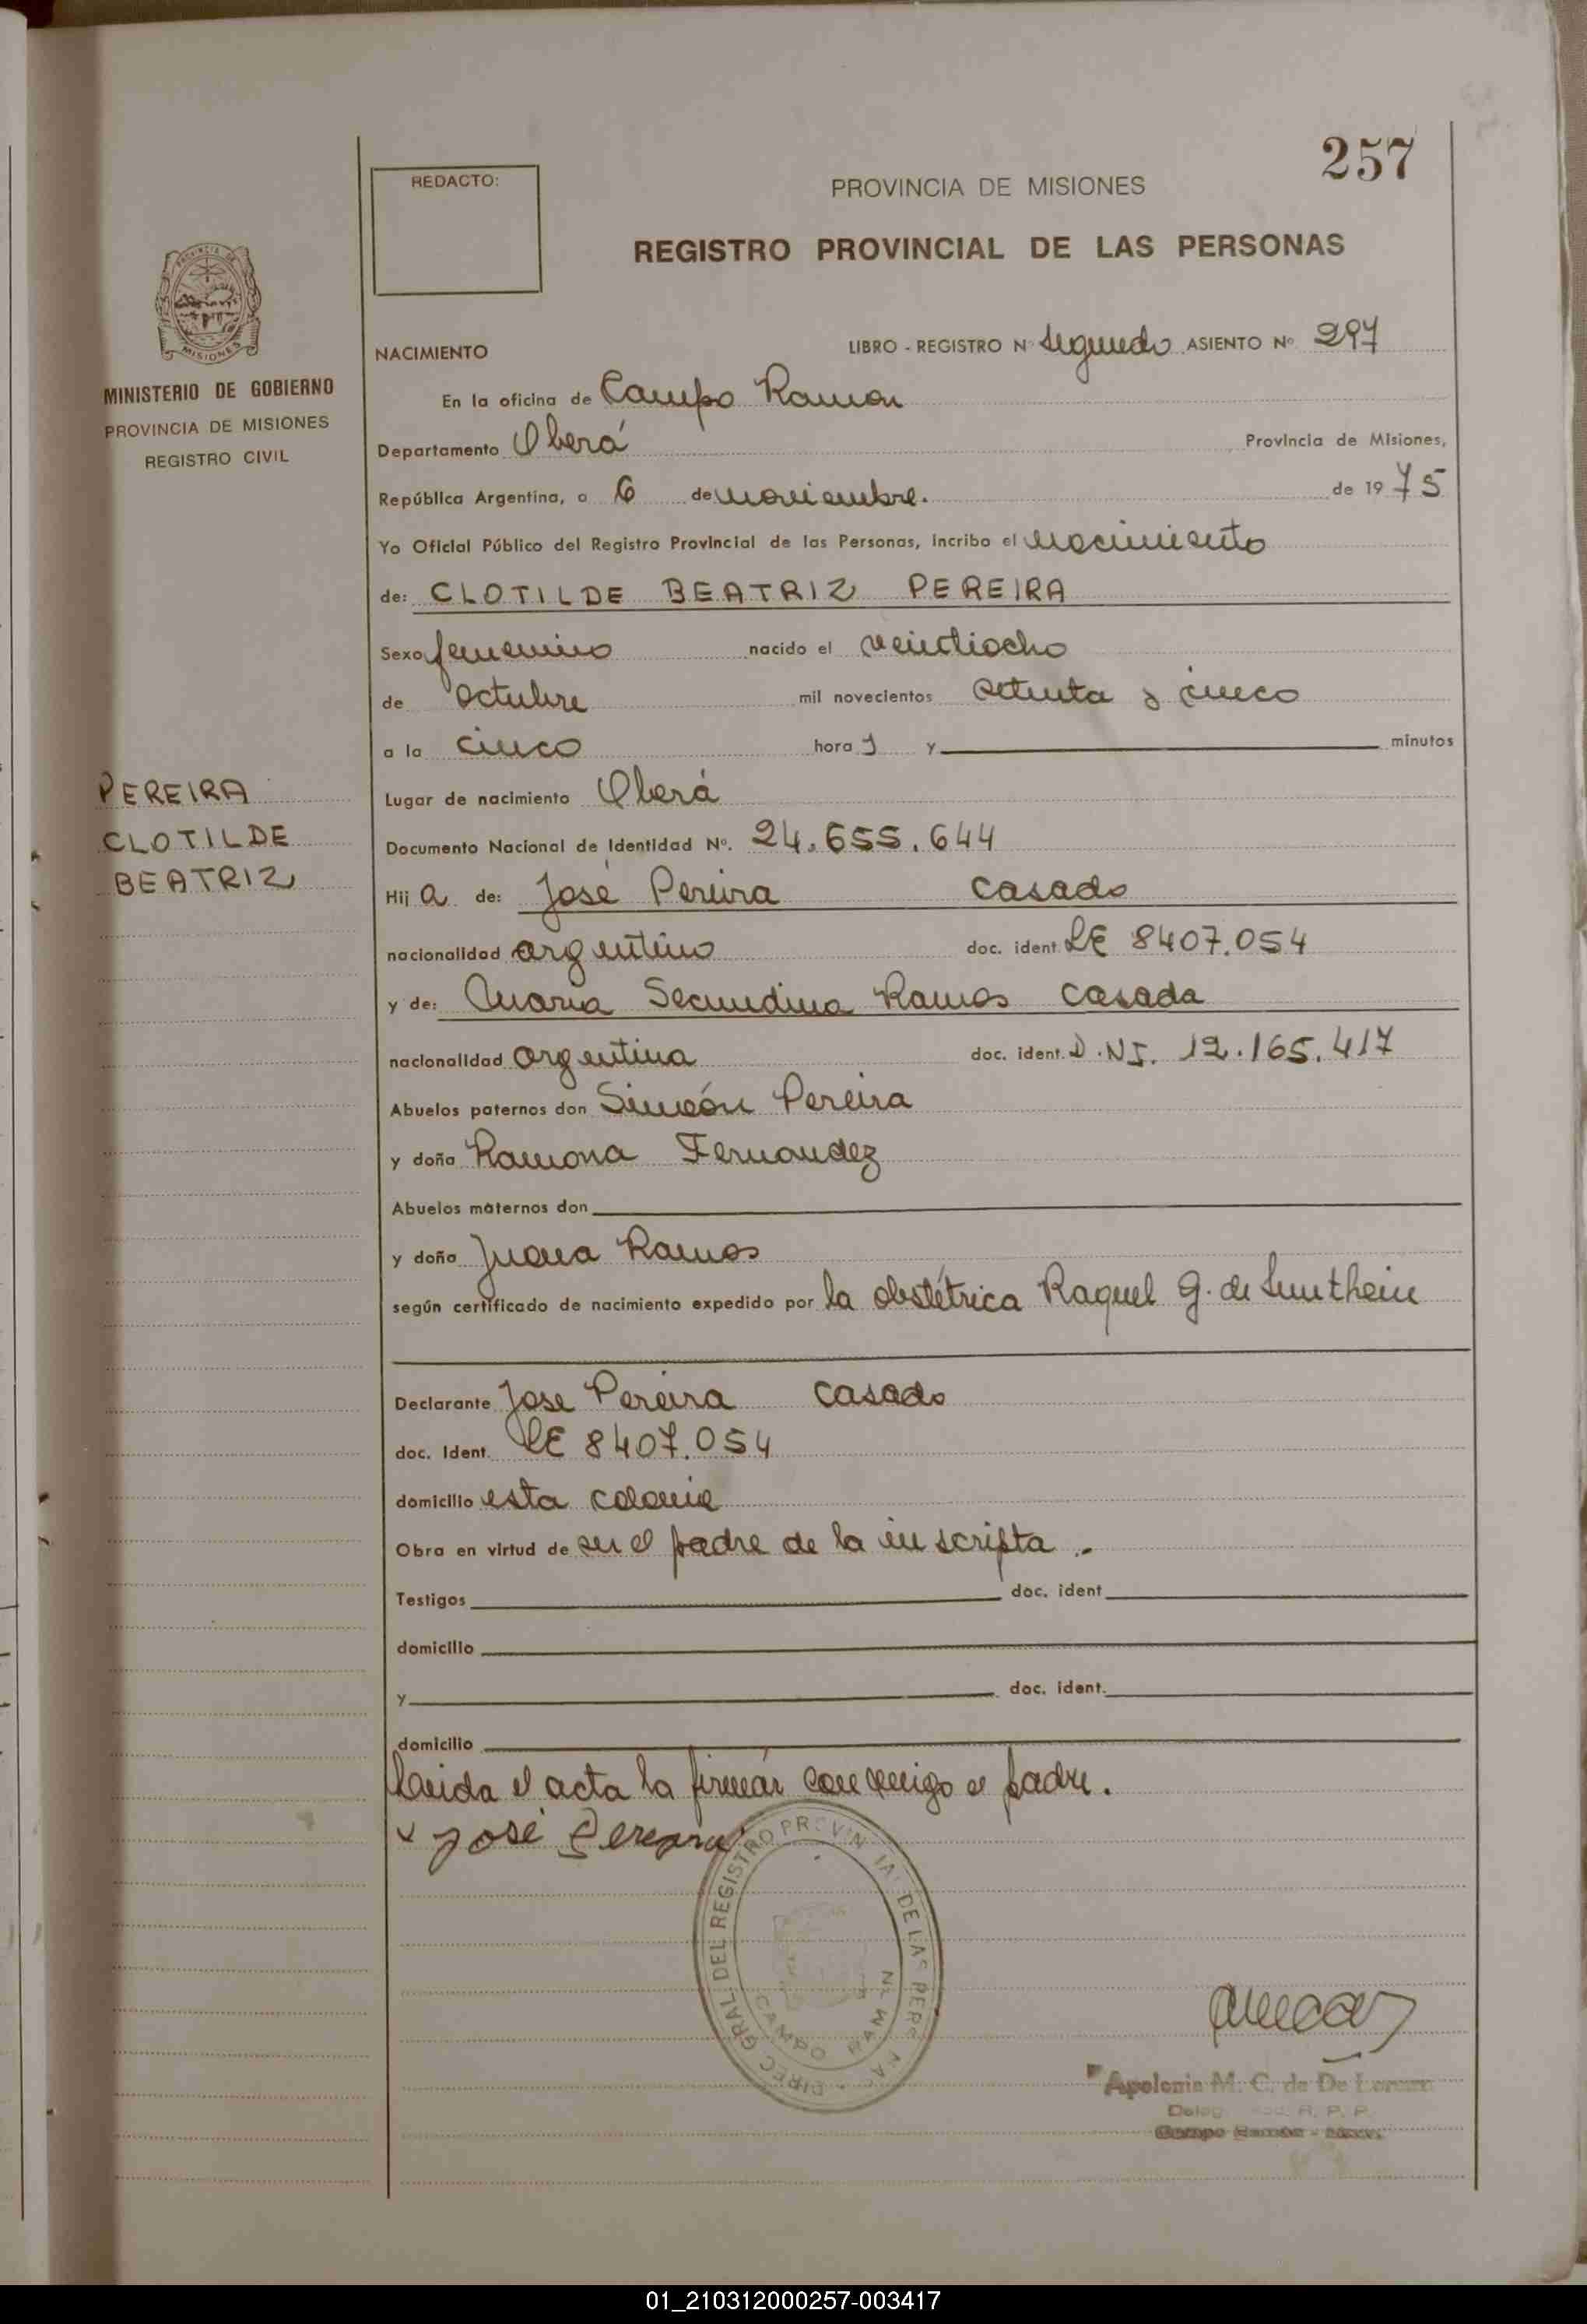 257
REDACTO:
PROVINCIA DE MISIONES
REGISTRO PROVINCIAL DE LAS PERSONAS
PROVINCIA DE
MISIONES
MINISTERIO DE GOBIERNO
PROVINCIA DE MISIONES
REGISTRO CIVIL
NACIMIENTO LIBRO - REGISTRO N° Segundo ASIENTO N° 297
En la oficina de Campo Ramon
Departamento Oberá Provincia de Misiones,
República Argentina, a 6 de noviembre. de 1975
Yo Oficial Público del Registro Provincial de las Personas, incribo el nacimiento
de: CLOTILDE BEATRIZ PEREIRA
Sexo femenino nacido el veintiocho
de octubre mil novecientos setenta y cinco
a la cinco hora s y minutos
PEREIRA
CLOTILDE
BEATRIZ
Lugar de nacimiento Oberá
Documento Nacional de Identidad N°. 24.655.644
Hij a de: José Pereira casado
nacionalidad argentino doc. ident. LE 8407.054
y de: Maria Secundina Ramos casada
nacionalidad argentina doc. ident. D.NI. 12.165.417
Abuelos paternos don Simeón Pereira
y doña Ramona Fernandez
Abuelos maternos don
y doña Juana Ramos
según certificado de nacimiento expedido por la obstétrica Raquel G. de
Declarante Jose Pereira casado
doc. Ident. LE 8407.054
domicilio esta colonia
Obra en virtud de ser el padre de la inscripta.-
Testigos doc. ident
domicilio
y doc. ident.
domicilio
el acta la firmar conmigo el padre.
x José Pereira
DIREC GRAL. DEL REGISTRO PROVINCIAL DE LAS PERSONAS
CAMPO RAMON
Apolonia M. C. de De
R. P. P.
Campo Ramon
01_210312000257-003417